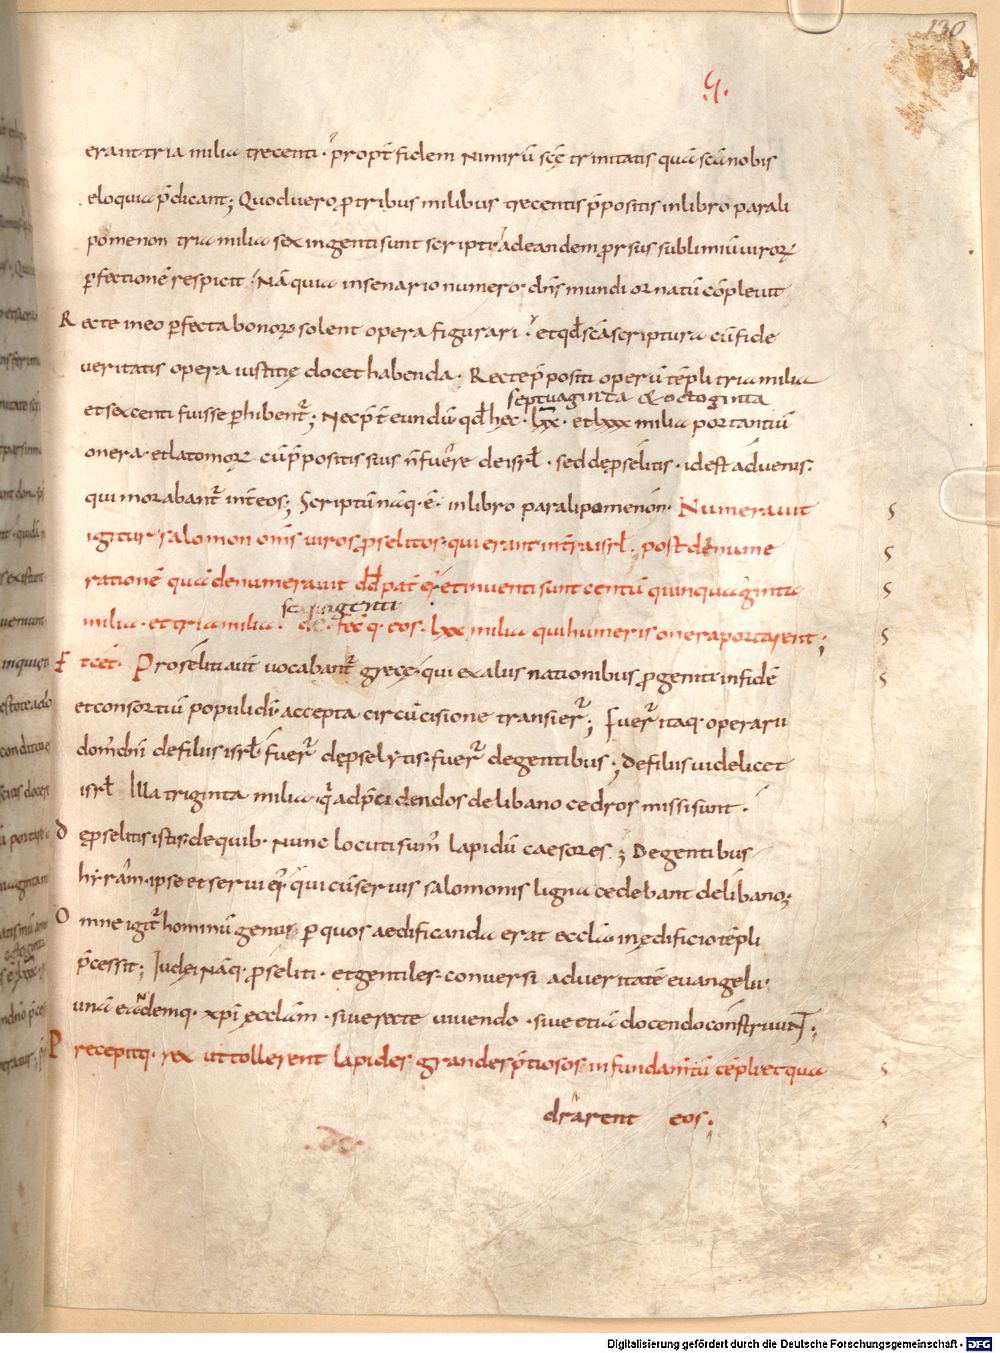 130
.ς.
erant tria milia trecenti · propt̄ fidem nimirū scę trinitatis quā scā nobis
eloquia p̄dicant; Quod uero p tribus milibus trecentis p̄positis in libro parali
pomenon tria milia sexingenti sunt scripti ad eandem prsus sublimiū uirorꝝ
ꝑfectionē respicit · Nā quia in senario numero · dn̄s mundi ornatū cōpleuit
Recte in eo ꝑfecta bonorꝝ solent opera figurari · et qđ scā scriptura cū fide
ueritatis opera iustitię docet habenda · Recte p̄positi operū tēpli tria milia
septuaginta & octoginta
et sexcenti fuisse ꝑhibent᷑; Nec p̄t̄eundū qđ hęc · lxx · et lxxx milia portantiū
onera · et latomorꝝ cū p̄positis suis n̄ fuere de isrł · sed de pselitis · id est aduenis ·
qui morabant᷑ int̄ eos; Scriptū nāq · ē · in libro paralipomenon · Numerauit
igitur salomon om̄s uiros pselitos · qui erant in t̄ra isrł · post denume
rationē quā denumerauit dd̄ pat̄ ei᷒ · et inuenti sunt centū quinquaginta
milia · et tria milia · dc · fecitq · eos · lxx milia qui humeris onera portarent;
sexingenti
Et cet̄ · Proseliti aut̄ uocabant᷑ gręcę · qui ex aliis nationibus pgeniti in fidē
et consortiū populi dī · accepta circūcisione transier᷑; Fuer᷑ itaq · operarii
dom᷒ dn̄i de filiis isrł · fuer᷑ de pselytis · fuer᷑ de gentibus; De filiis uidelicet
isrł Illa triginta milia · q̄ ad p̄cidendos de libano cedros missi sunt ·
De pselitis istis · de quib · nunc locuti sum᷒ lapidū caesores; De gentibus
hyrām · ipse et serui ei᷒ · qui cū seruis salomonis ligna cedebant de libano;
Omne igit᷑ hominū genus · ꝑ quos aedificanda erat ecclā in ędificio tēpli
p̄cessit; Iudei nāq · pseliti · et gentiles · conuersi ad ueritatē euangelii ·
unā eandemq · xp̄i ęcclām · siue recte uiuendo · siue etiā docendo construunt;
Precepitq · rex ut tollerent lapides grandes p̄tiosos in fundam̄tū tēpli · et qua
drarent eos;
Digitalisierung gefördert durch die Deutsche Forschungsgemeinschaft - DFG